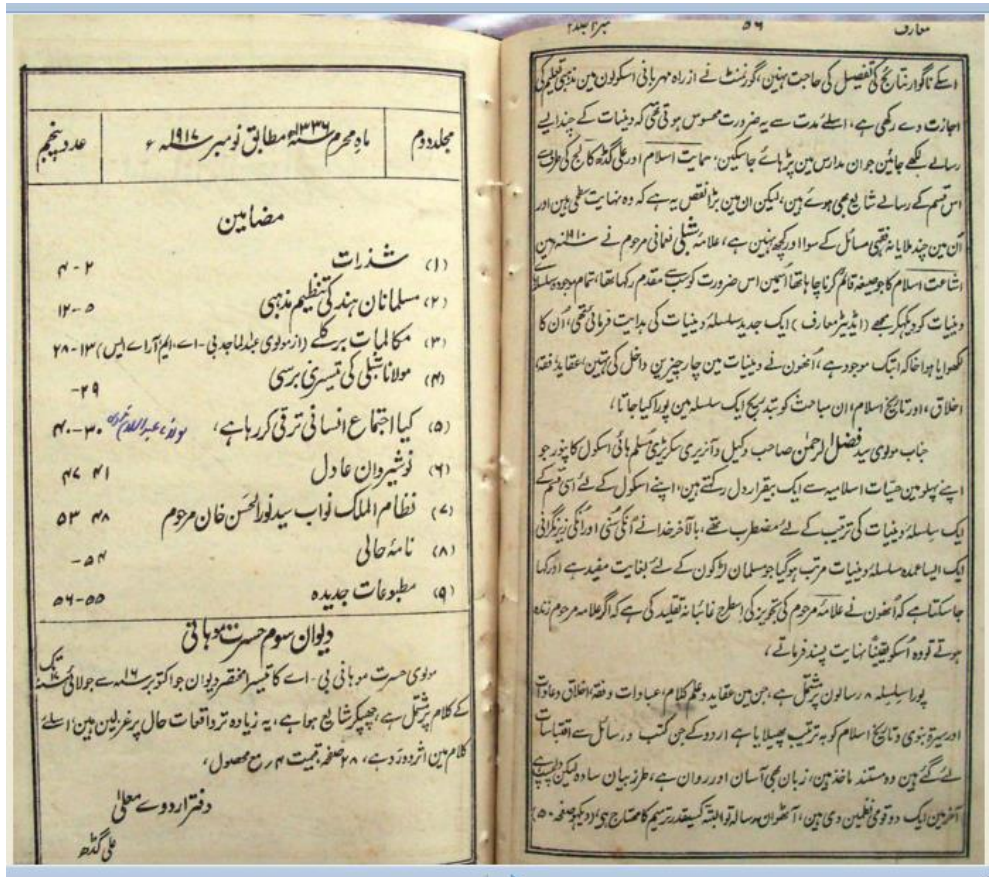 معارف ۵۶ نمبر۴ جلد۲
اسکے ناگوار نتائج کی تفصیل کی حاجت نہین، گورنمنٹ نے از راہ مہربانی اسکولون مین مذہبی تعلیم کی
اجازت دے رکھی ہے، اسلئے مدت سے یہ ضرورت محسوس ہوتی تھی کہ دینیات کے چند ایسے
رسالے لکھے جائین جو ان مدارس مین پڑہائے جاسکین، حمایت اسلام اور علی گڈھ کالج کی طرف سے
اس قسم کے رسالے شایع بھی ہوئے ہین، لیکن ان مین بڑا نقص یہ ہے کہ وہ نہایت سطحی ہین اور
اُن مین چند ملایانہ فقہی مسائل کے سوا اور کچھ نہین ہے، علامۂ شبلی نعمانی مرحوم نے ۱۹۱۰ء مین
اشاعت اسلام کا جو صیغہ قائم کرنا چاہا تھا اُسمین اس ضرورت کو سب سے مقدم رکہا تھا، تمام موجودہ سلسلۂ
دینیات کو دیکہکر مجھے (ایڈیٹر معارف) ایک جدید سلسلۂ دینیات کی ہدایت فرمائی تھی، اُن کا
لکھوایا ہوا خاکہ ابتک موجود ہے، اُنھون نے دینیات مین چار چیزین داخل کی تہین، عقاید، فقہ،
اخلاق، اور تاریخ اسلام، ان مباحث کو بتدریج ایک سلسلہ مین پورا کیا جاتا،
جناب مولوی سید فضل الرحمٰن صاحب وکیل و آنریری سکریٹری مسلم ہائی اسکول کانپور جو
اپنے پہلو مین حسّیات اسلامیہ سے ایک بیقرار دل رکہتے ہین، اپنے اسکول کے لئے اسی قسم کے
ایک سلسلۂ دینیات کی ترتیب کے لئے مضطرب تھے، بالآخر خدا نے اُنکی سُنی اور اُنکی زیر نگرانی
ایک ایسا عمدہ سلسلۂ دینیات مرتب ہوگیا جو مسلمان لڑکون کے لئے بغایت مفید ہے اور کہا
جاسکتا ہے کہ اُنھون نے علامۂ مرحوم کی تجویز کی اسطرح غائبانہ تقلید کی ہے کہ اگر علامہ مرحوم زندہ
ہوتے تو وہ اُسکو یقیناً نہایت پسند فرماتے،
پورا سلسلہ ۸ رسالون پر مشتمل ہے، جن مین عقاید و علم کلام، عبادات و فقہ، اخلاق و عادات
اور سیرۃ نبوی و تاریخ اسلام کو بہ ترتیب پھیلایا ہے اردو کے جن کتب و رسائل سے اقتباسات
لئے گئے ہین وہ مستند ماخذ ہین، زبان بھی آسان اور روان ہے، طرز بیان سادہ لیکن دلچسپ ہے
آخر مین ایک دو قومی نظمین دی ہین، آٹھوان رسالہ تو البتہ کسیقدر ترمیم کا محتاج ہی، (دیکہو صفحہ ۵۰)
مجلد دوم ماہ محرم ۱۳۳۶ھ مطابق نومبر ۱۹۱۷ء عدد پنجم
مضامین
(۱) شذرات ۲-۴
(۲) مسلمانان ہند کی تنظیم مذہبی ۵-۱۲
(۳) مکالمات برکلے (از مولوی عبدالماجد بی-اے-ایم آر اے ایس) ۱۳-۲۸
(۴) مولانا شبلی کی تیسری برسی ۲۹-
(۵) کیا اجتماع انسانی ترقی کر رہا ہے، مولانا عبدالسلام ندوی ۳۰-۴۰
(۶) نوشیروان عادل ۴۱ ۴۷
(۷) نظام الملک نواب سید نورالحسن خان مرحوم ۴۸ ۵۳
(۸) نامۂ حالی ۵۴-
(۹) مطبوعات جدیدہ ۵۵-۵۶
دیوان سوم حسرت موہانی
مولوی حسرت موہانی بی-اے کا تیسرا مختصر دیوان جو اکتوبر ۱۶ء سے جولائی ۱۷ء تک
کے کلام پر مشتمل ہے، چھپکر شایع ہوا ہے، یہ زیادہ تر واقعات حال پر غزلین ہین، اسلئے
کلام مین اثر و درد ہے، ۲۸ صفحہ، قیمت ۴ر مع محصول،
دفتر اردوے معلیٰ
علی گڈھ